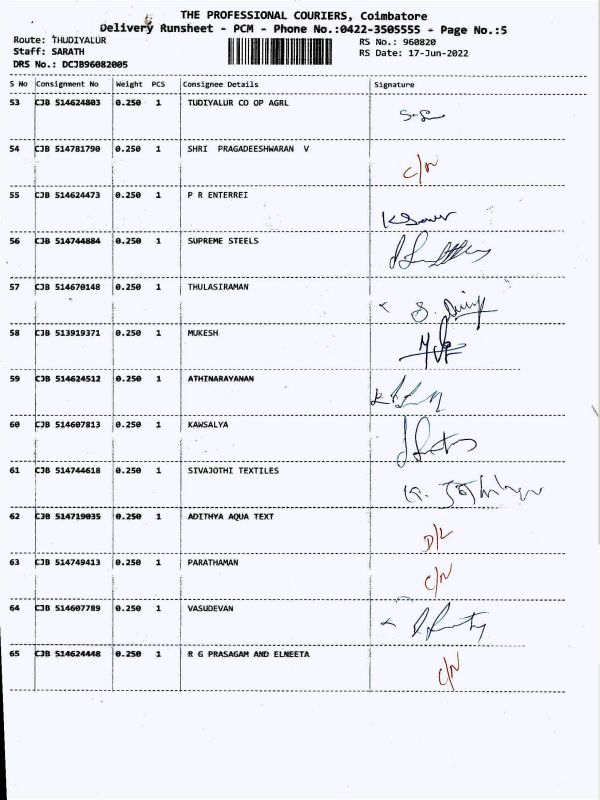 THE PROFESSIONAL COURIERS, Coimbatore
Delivery Runsheet - PCM - Phone No.:0422-3505555 - Page No.:5
Route: THUDIYALUR
RS No.: 960820
Staff: SARATH
RS Date: 17-Jun-2022
DRS No.: DCJB96082005
S No Consignment No Weight PCS Consignee Details Signature
53 CJB 514624803 0.250 1 TUDIYALUR CO OP AGRL
54 CJB 514781790 0.250 1 SHRI PRAGADEESHWARAN V C/N
55 CJB 514624473 0.250 1 P R ENTERREI
56 CJB 514744884 0.250 1 SUPREME STEELS
57 CJB 514670148 0.250 1 THULASIRAMAN
58 CJB 513919371 0.250 1 MUKESH
59 CJB 514624512 0.250 1 ATHINARAYANAN
60 CJB 514607813 0.250 1 KAWSALYA
61 CJB 514744618 0.250 1 SIVAJOTHI TEXTILES
62 CJB 514719035 0.250 1 ADITHYA AQUA TEXT D/L
63 CJB 514749413 0.250 1 PARATHAMAN C/N
64 CJB 514607789 0.250 1 VASUDEVAN
65 CJB 514624448 0.250 1 R G PRASAGAM AND ELNEETA C/N